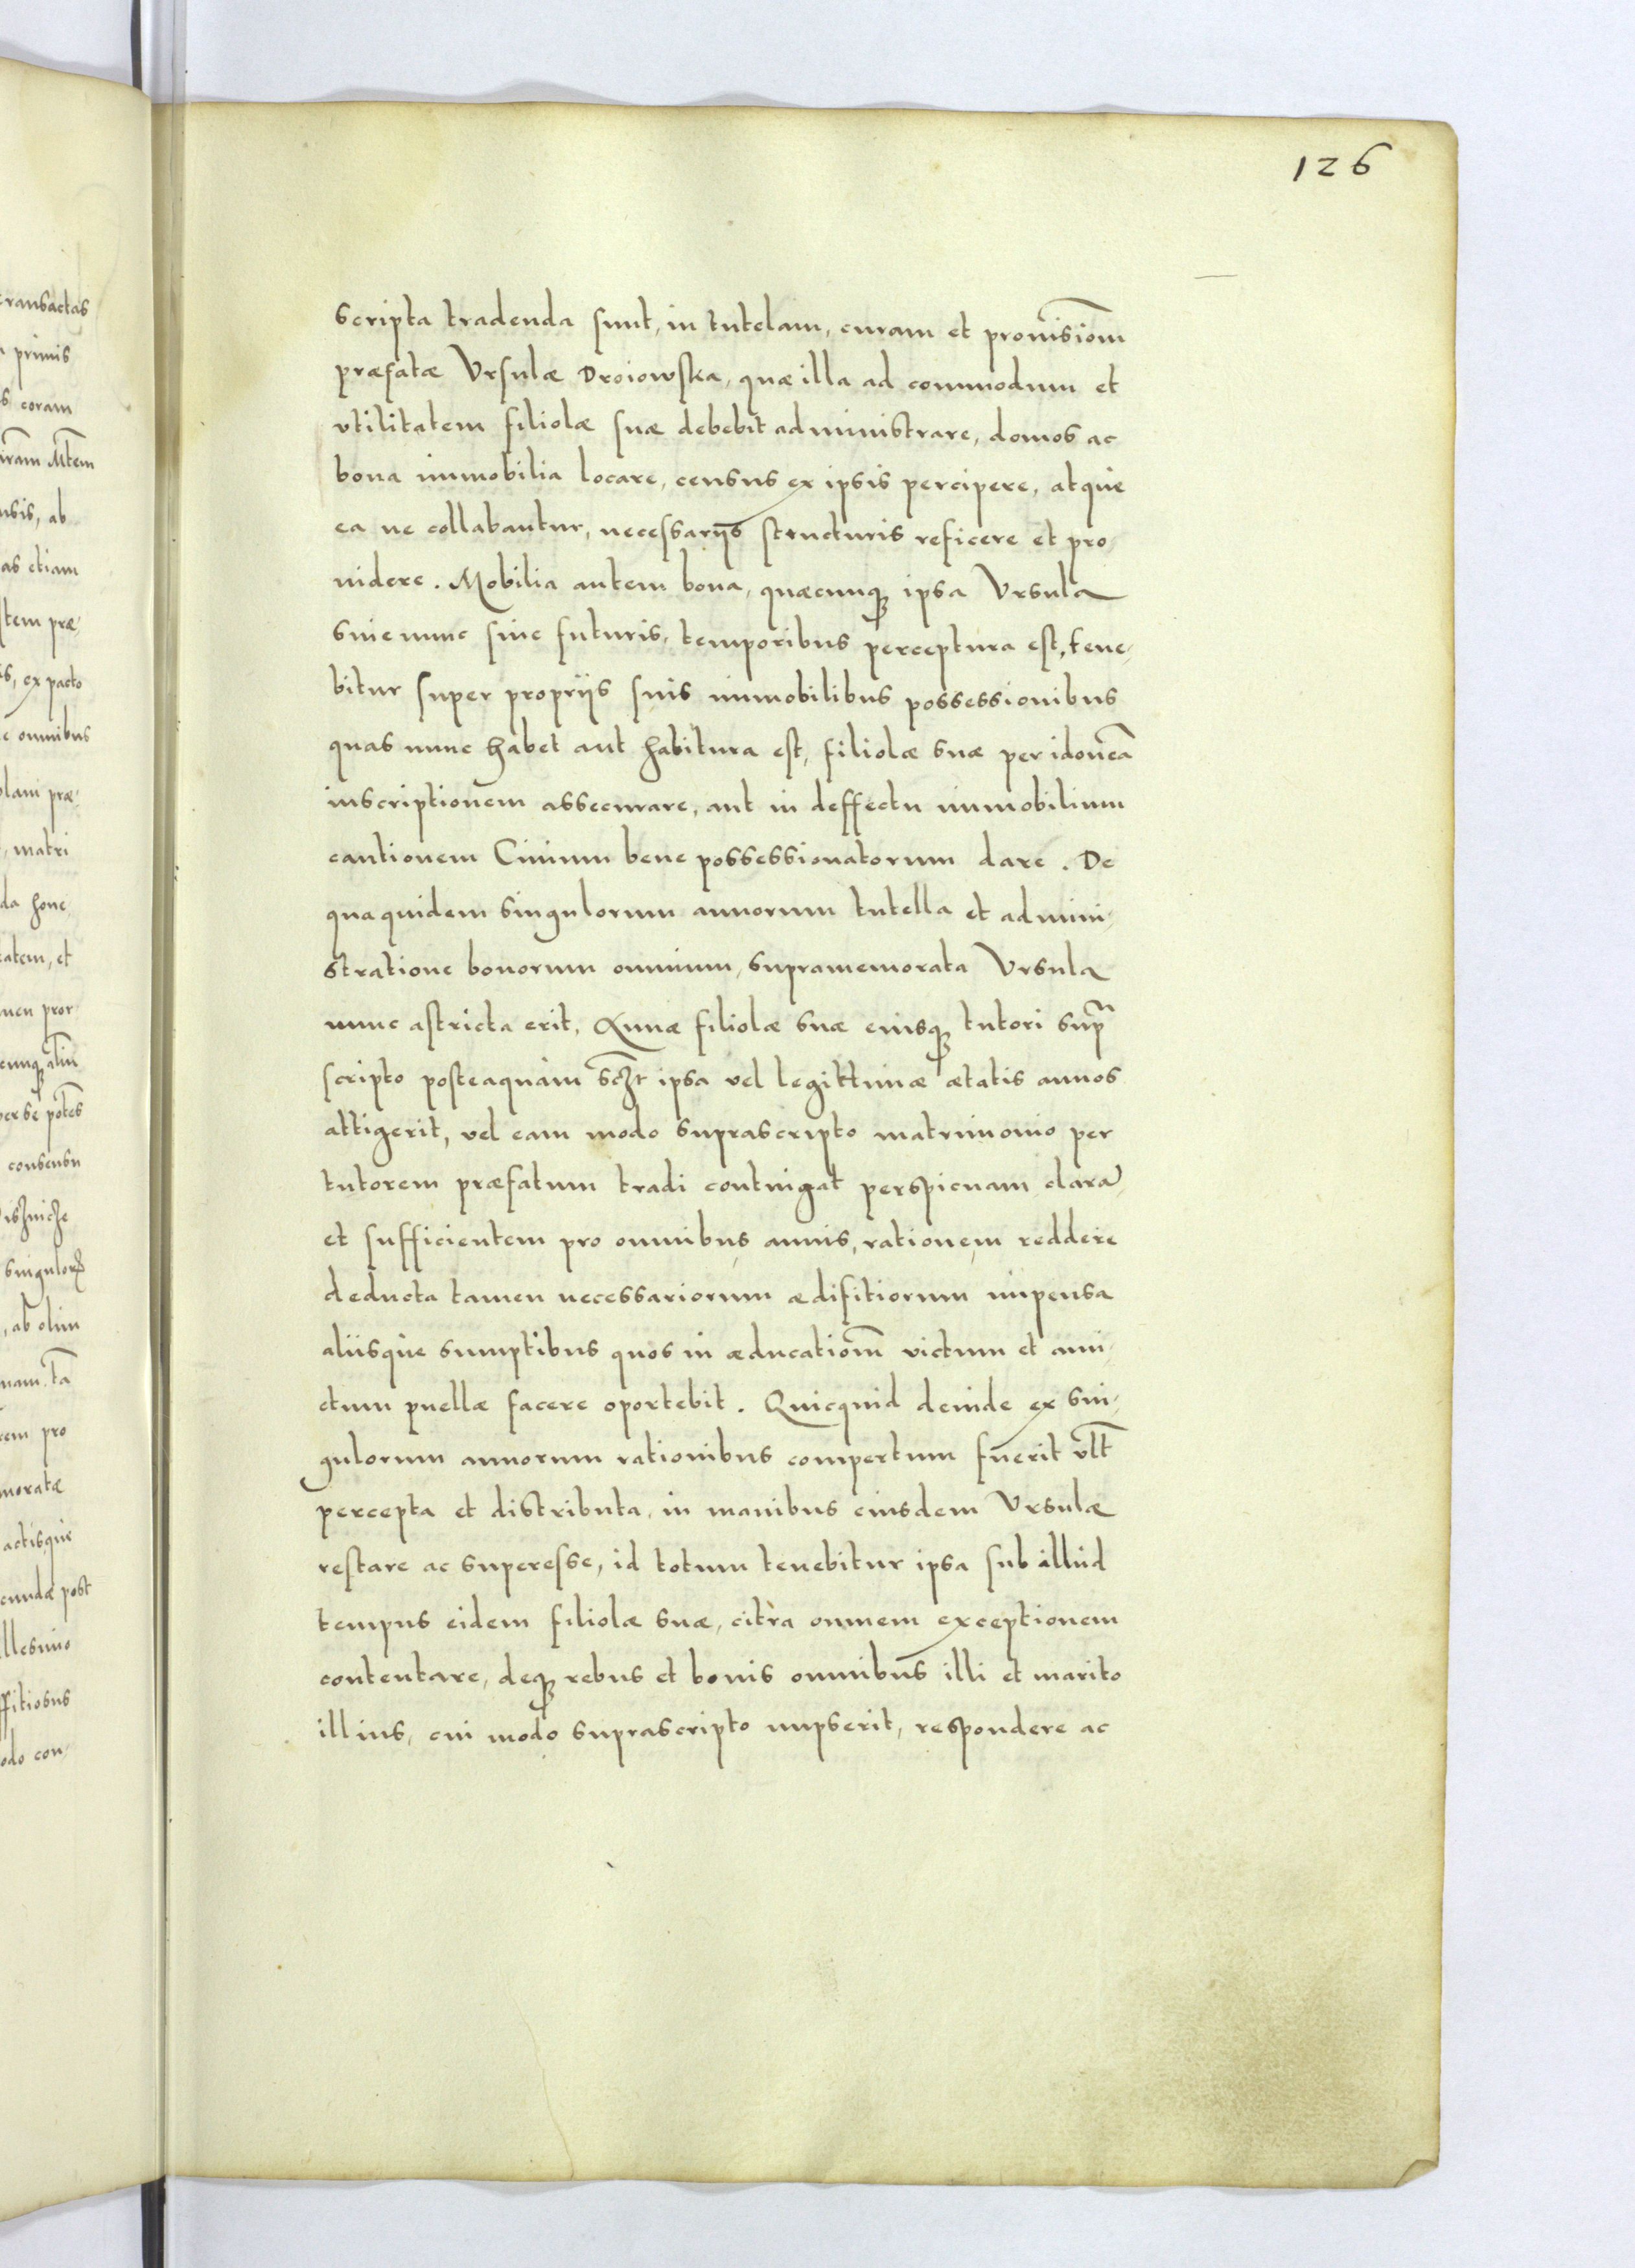 126
scripta tradenda sunt, in tutelam, curam et prouisiom̃
præfatæ Vrsulæ Droiowska, quæ illa ad commodum et
vtilitatem filiolæ suæ debebit administrare, domos ac
bona immobilia locare, census ex ipsis percipere, atque
ea ne collabantur, necessarijs structuris reficere et pro,
uidere. Mobilia autem bona, quæcunq; ipsa Vrsula
siue nunc siue futuris, temporibus perceptura est, tene,
bitur super proprijs suis immobilibus possessionibus
quas nunc habet aut habitura est, filiolæ suæ per idoneã
inscriptionem assecurare, aut in deffectu immobilium
cautionem Ciuium bene possessionatorum dare. De
qua quidem singulorum annorum tutella et admini,
stratione bonorum omnium, supramemorata Vrsula
nunc astricta erit, Annæ filiolæ suæ eiusq; tutori supra
scripto posteaquàm sczt ipsa vel legittimæ ætatis annos
attigerit, vel eam modo suprascripto matrimonio per
tutorem præfatum tradi contingat perspicuam clarã,
et sufficientem pro omnibus annis, rationem reddere
deducta tamen necessariorum ædifitiorum impensa
aliisque sumptibus quos in æducatiom̃ victum et ami,
ctum puellæ facere oportebit. Quicquid deinde ex sin,
gulorum annorum rationibus compertum fuerit vlt̃
percepta et distributa, in manibus eiusdem Vrsulæ
restare ac superesse, id totum tenebitur ipsa sub illud
tempus eidem filiolæ suæ, citra omnem exceptionem
contentare, deq; rebus et bonis omnibus illi et marito
illius, cui modo suprascripto nupserit, respondere ac
transactas
primis
coram
Mt̃em
ab
as etiam
tem præ,
ex pacto
omnibus
præ,
matri
da hone,
atem, et
men pror
consensu
singulor
ab olim
pro
actisque
post
llesimo
ffitiosus
odo con,